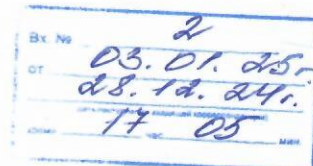 Вх. № 2
от 03.01.25г.
28.12.24г.
17 час 05 мин.